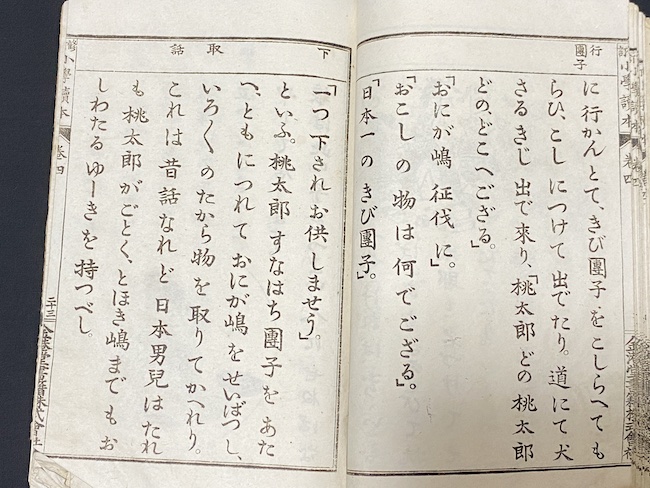 行
團子
に行かんとて、きび團子をこしらへても
らひ、こしにつけて出でたり。道にて犬
さるきじ出で來り、「桃太郎どの桃太郎
どのどこへござる。」
「おにが嶋征伐に。」
「おこしの物は何でござる。」
「日本一のきび團子。」
下取話
「一つ下されお供しませう。」
といふ。桃太郎すなはち團子をあた
へ、ともにつれておにが嶋をせいばつし、
いろ〳〵のたから物を取りてかへれり。
これは昔話なれど日本男兒はたれ
も桃太郎がごとく、とほき嶋までもお
しわたるゆーきを持つべし。
小學讀本 卷四 二十三